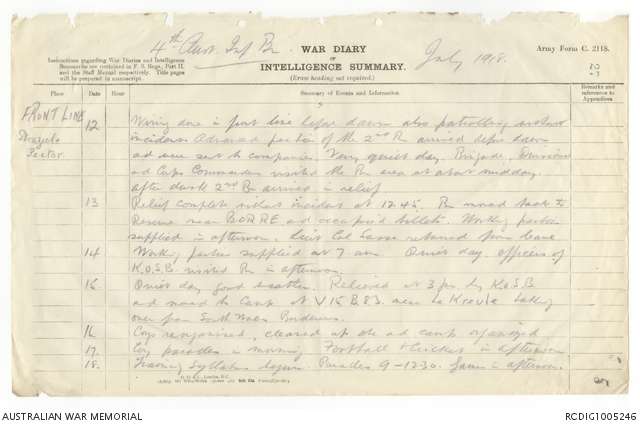 4th Aust Inf Bn. WAR DIARY July 1918.
OF
INTELLIGENCE SUMMARY.
(Erase heading not required.)
Army Form C. 2118.
Instructions regarding War Diaries and Intelligence
Summaries are contained in F. S. Regs., Part II.
and the Staff Manual respectively. Title pages
will be prepared in manuscript.
Place Date Hour Summary of Events and Information. Remarks and
references to
Appendices
FRONT LINE
Strazeele
Sector
12 Wiring done in front line before dawn also patrolling without
incident. Advanced parties of the 2nd Bn arrived before dawn
and were sent to companies. Very quiet day. Brigade, Division
and Corps Commanders visited the Bn area at about midday.
After dark 2nd Bn arrived in relief.
13 Relief complete without incident at 1245. Bn moved back to
Reserve near BORRE and occupied billets. Working parties
supplied in afternoon. Lieut Col returned from leave
14 Working parties supplied at 7 am. Quiet day officers of
K.O.S.B. visited Bn in afternoon.
15 Quiet day good weather. Relieved at 3 pm by K.O.S.B
and moved to Camp at V 15 B 8.3. near taking
over from South Wales Borderers.
16 Coys reorganised, cleaned up etc and camp organized
17. Coy parades in morning Football & Cricket in afternoon
18. Training Syllabus begun. Parades 9-12.30. Games in afternoon.
AUSTRALIAN WAR MEMORIAL
RCDIG1005246